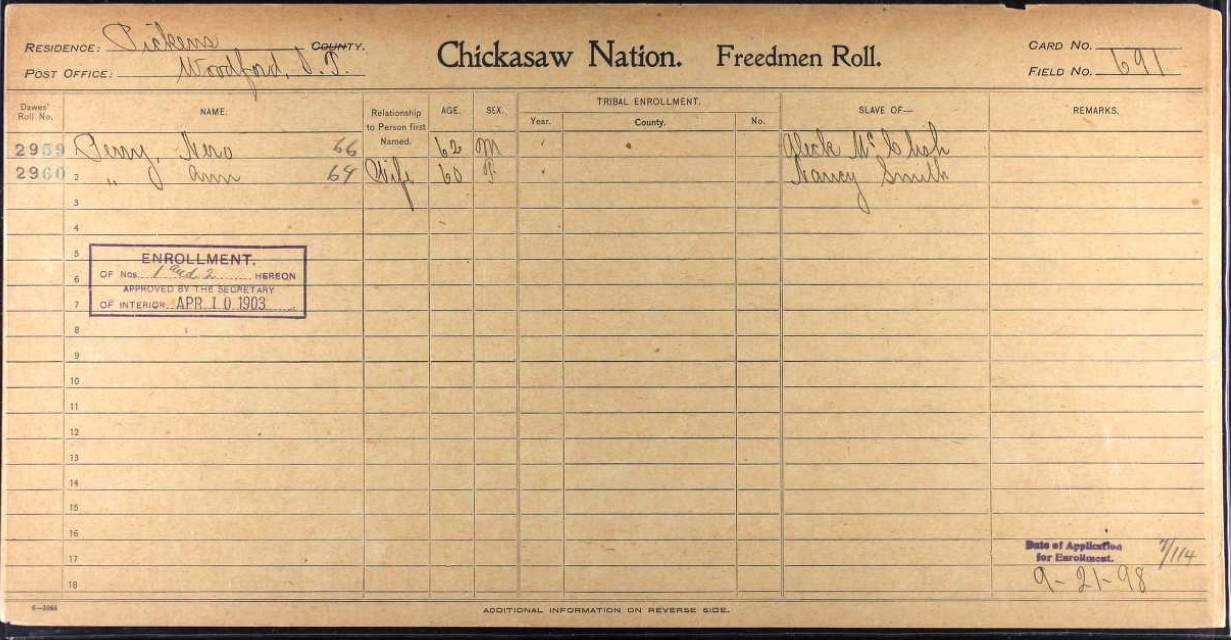 RESIDENCE: Pickens COUNTY.
POST OFFICE: Woodford, I.T.
Chickasaw Nation. Freedmen Roll.
CARD NO.
FIELD NO. 691
Dawes' Roll No.
NAME.
Relationship to Person first Named.
AGE.
SEX.
TRIBAL ENROLLMENT.
Year.
County.
No.
SLAVE OF—
REMARKS.
2959 Perry, Nero 66 62 M Aleck McClish
2960 2 " Ann 64 Wife 60 F Nancy Smith
3
4
5
6
7
8
9
10
11
12
13
14
15
16
17
18
ENROLLMENT.
OF NOS. 1 and 2 HEREON
APPROVED BY THE SECRETARY
OF INTERIOR. APR 10 1903
Date of Application
for Enrollment.
9-21-98
ADDITIONAL INFORMATION ON REVERSE SIDE.